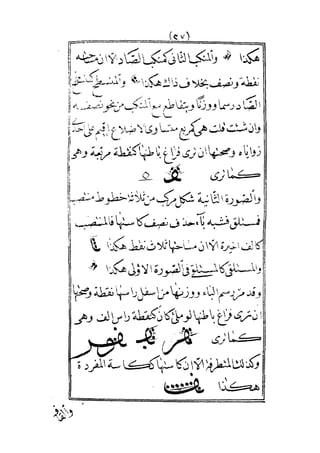 (٢٧)
هكذا والمنكب الثانى كمنكب الصاد الا ان
نقطة ونصف بخلاف ذاك هكذا والمنسطح كمنسطح
الصاد رسما ووزنا ويتقاطع مع المنكب من نحو نصفه
وان شئت قلت هى كمربع متساوى الاضلاع اقيم على احدى
زواياه وصحتها ان ترى فراغ باطنها كنقطة مربعة وهى
كما ترى
والصورة الثانية شكل مركب من ثلاثة خطوط منتصب
فمستلق فشبه باء حذف نصف كاسها فالمنتصب
كالف اخيرة الا ان مساحتها ثلاث نقط هكذا
والمستلقى كالمستلقى فى الصورة الاولى هكذا
وقد مر رسم الباء ووزنها من اسفل راسها نقطة وصحتها
ان ترى فراغ باطنها لو ملئ كان كنقطة راس الف وهى
كما ترى
وكذلك المتطرفة الا ان كاسها ككاسة المفردة
هكذا